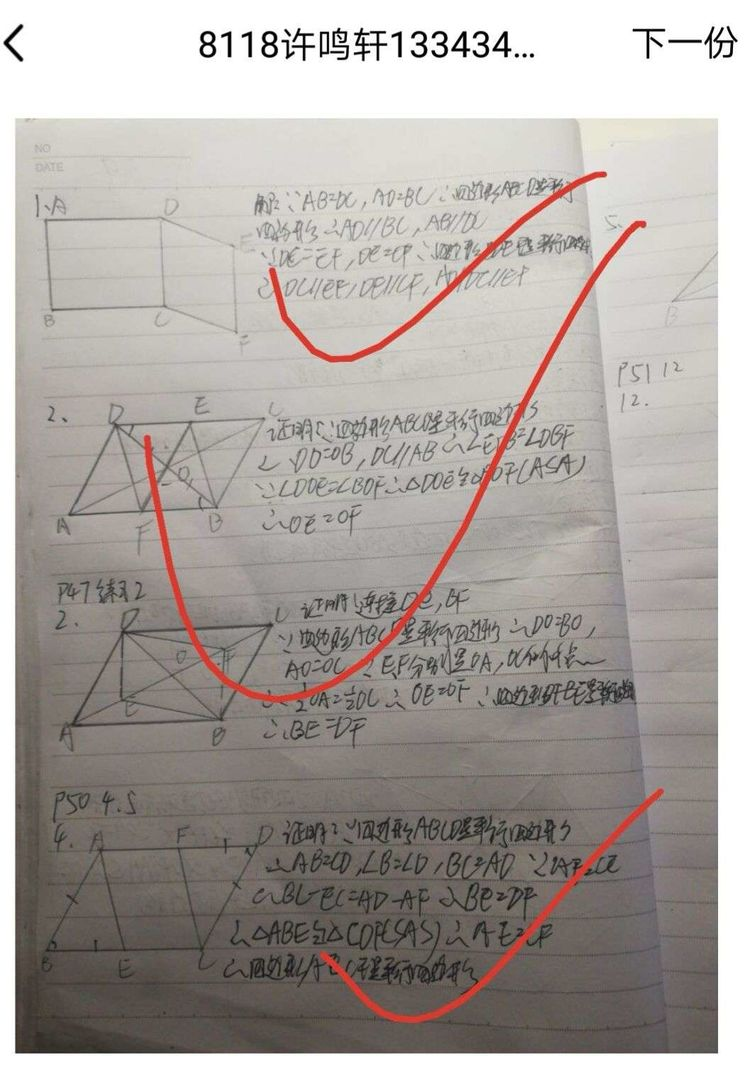 8118许鸣轩133434...
下一份
NO
DATE
1. A D
B C
E
F
解:∵AB=DC,AD=BC∴四边形ABCD是平行
四边形∴AD//BC,AB//DC
∵DE=EF,DE=CF∴四边形 是平行四边形
∴DC//EF,DE//CF,
2. D E C
O
A F B
证明:∵四边形ABCD是平行四边形
∴DO=OB,DC//AB∴∠EDB=∠DBF
∵∠DOE=∠BOF∴△DOE≌△BOF(ASA)
∴OE=OF
P47练习2
2. D C
O F
E
A B
证明:连接DE,BF
∵四边形ABCD是平行四边形∴DO=BO,
AO=OC∵E,F分别是OA,OC的中点
∴½OA=½OC∴OE=OF∴四边形DFBE是平行四边形
∴BE=DF
P50 4.5
4. A F D
B E C
证明:∵四边形ABCD是平行四边形
∴AB=CD,∠B=∠D,BC=AD∵AF=CE
∴BC-EC=AD-AF∴BE=DF
∴△ABE≌△CDF(SAS)∴AE=CF
∴四边形AECF是平行四边形
5.
B
P51 12
12.